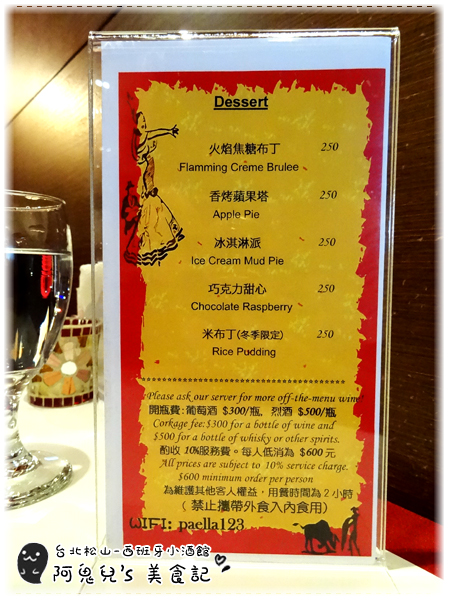 Dessert
火焰焦糖布丁 250
Flamming Creme Brulee
香烤蘋果塔 250
Apple Pie
冰淇淋派 250
Ice Cream Mud Pie
巧克力甜心 250
Chocolate Raspberry
米布丁(冬季限定) 250
Rice Pudding
****************************************
Please ask our server for more off-the-menu wine
開瓶費:葡萄酒 $300/瓶, 烈酒 $500/瓶
Corkage fee:$300 for a bottle of wine and
$500 for a bottle of whisky or other spirits.
酌收 10%服務費。每人低消為 $600元
All prices are subject to 10% service charge.
$600 minimum order per person
為維護其他客人權益，用餐時間為2小時
（禁止攜帶外食入內食用）
WIFI: paella123
台北松山-西班牙小酒館
阿鬼兒's 美食記